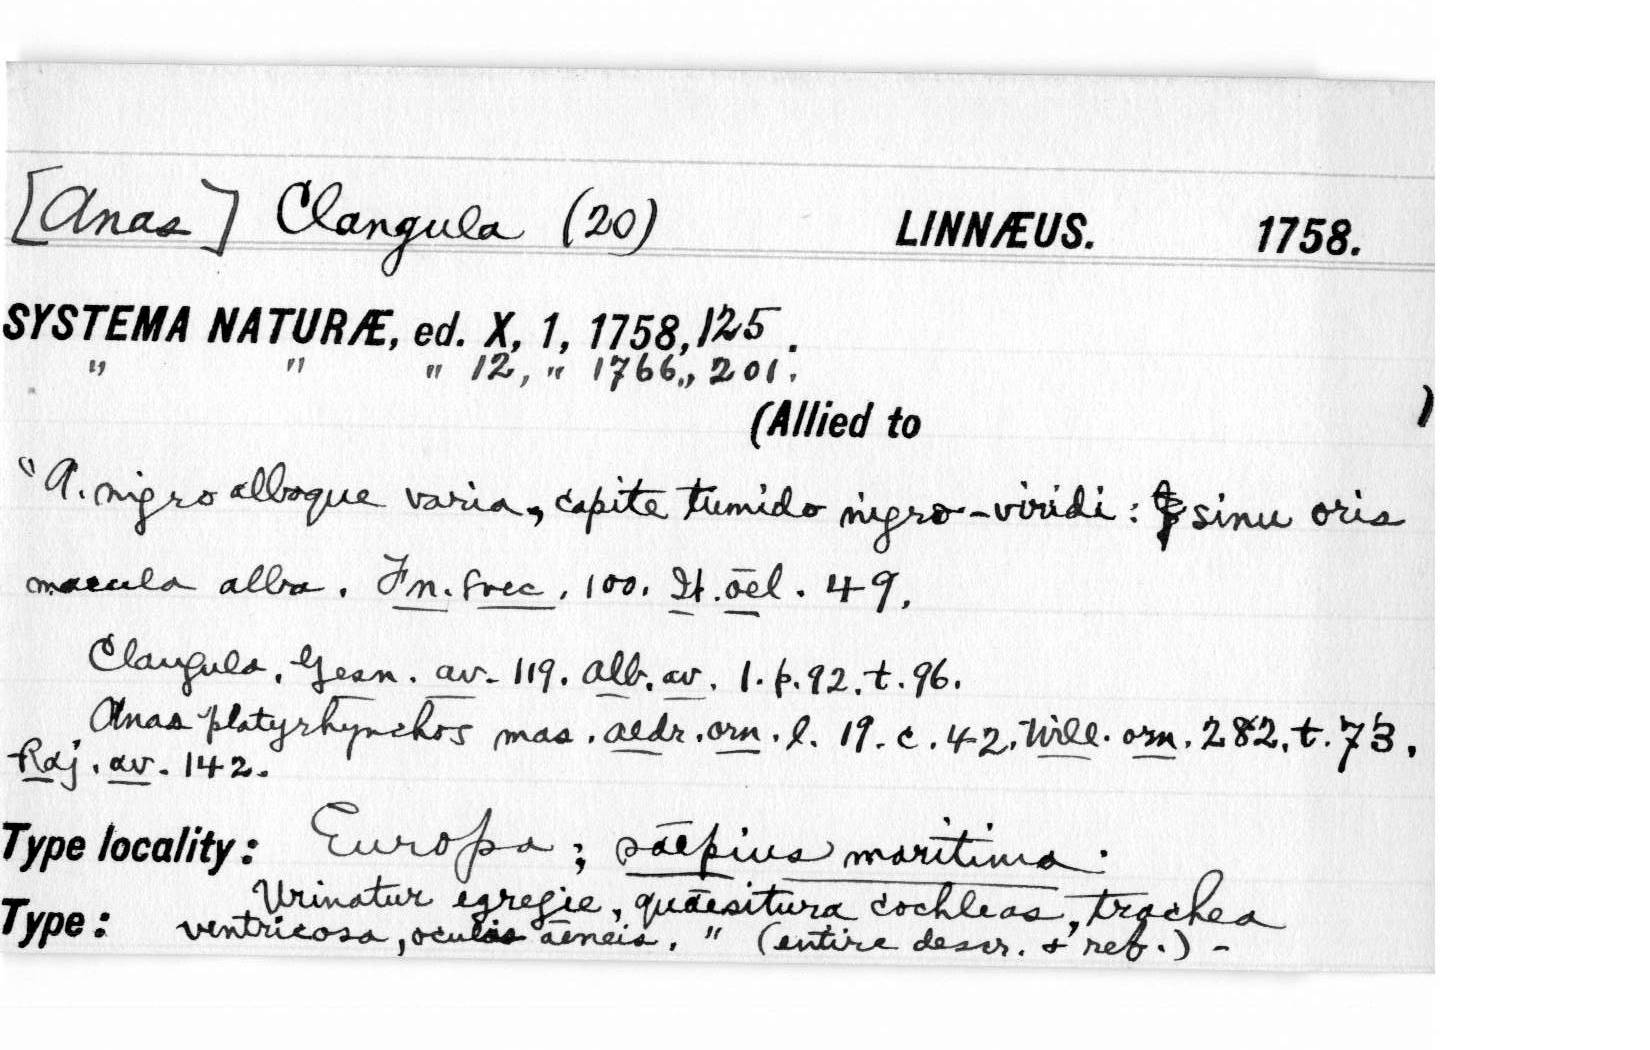 [Anas] Clangula (20) LINNÆUS. 1758.
SYSTEMA NATURÆ, ed. X, 1, 1758, 125.
" " " 12, " 1766,, 201.
(Allied to )
"A. nigro alboque varia, capite tumido nigro-viridi: sinu oris
macula alba. Fn. svec. 100. It. oel. 49.
Clangula. Gesn. av. 119. Alb. av. 1. p. 92. t. 96.
Anas platyrhynchos mas. aldr. orn. l. 19. c. 42. Will. orn. 282. t. 73.
Raj. av. 142.
Type locality: Europa; saepius maritima.
Urinatur egregie, quaesitura cochleas, trachea
Type: ventricosa, oculis aeneis." (entire descr. & ref.) -